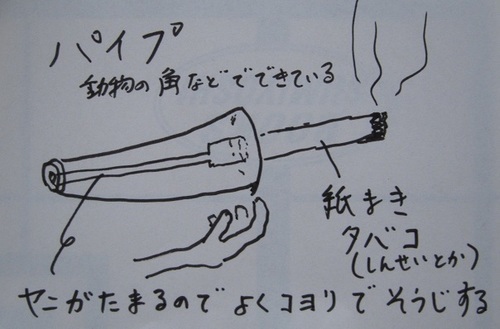 パイプ
動物の角などでできている
紙まき
タバコ
(しんせいとか)
ヤニがたまるのでよくコヨリでそうじする